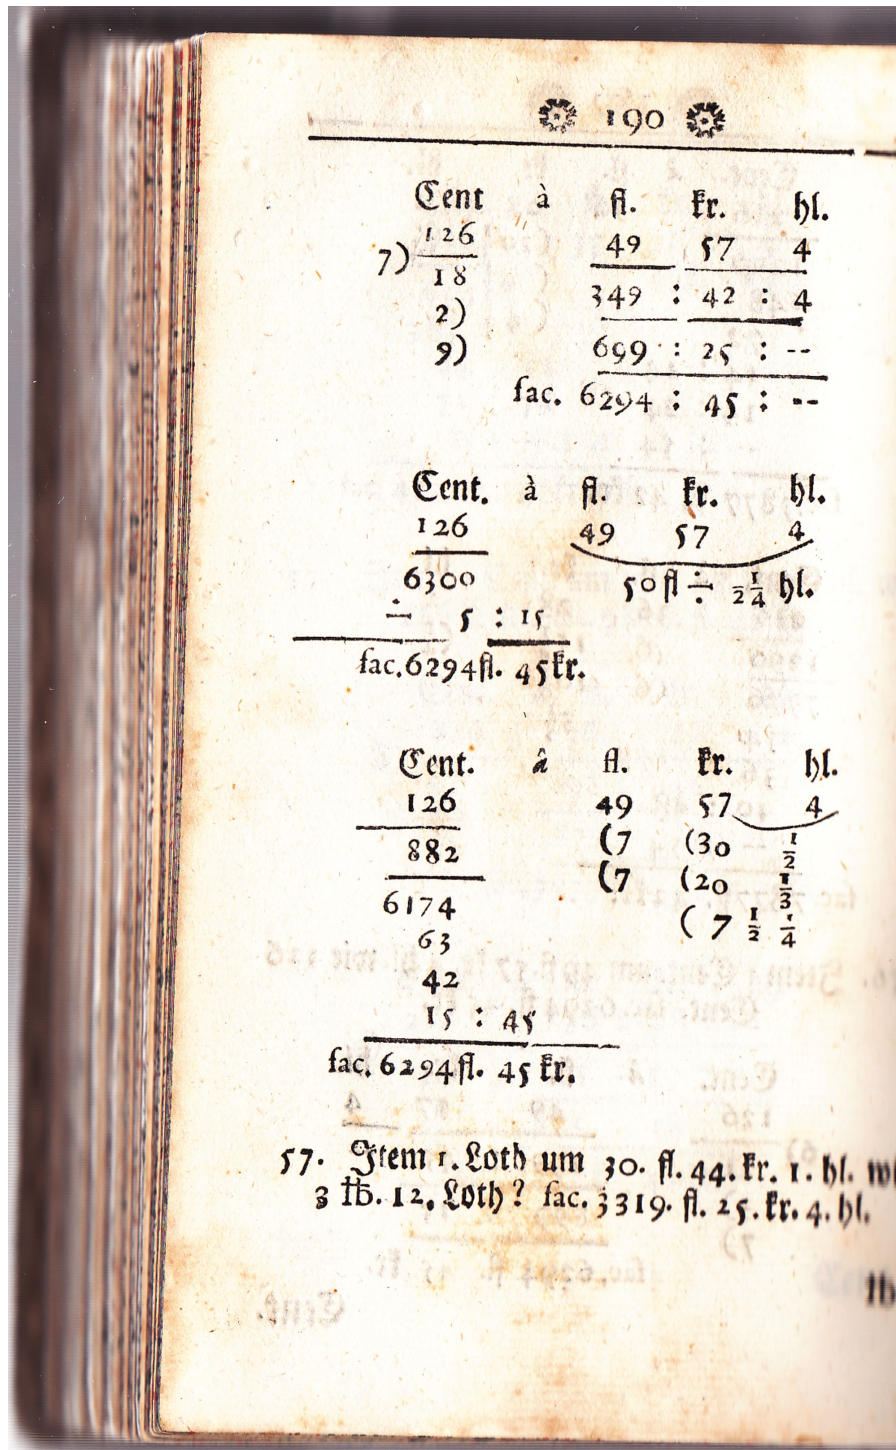 190
Cent à fl. kr. hl.
126 49 57 4
7) 18 349 : 42 : 4
2)
9) 699 : 25 : --
fac. 6294 : 45 : --
Cent. à fl. kr. hl.
126 49 57 4
6300 50 fl ÷ 2 1/4 hl.
÷ 5 : 15
fac. 6294 fl. 45 kr.
Cent. â fl. kr. hl.
126 49 57 4
882 (7 (30 1/2
(7 (20 1/3
6174 ( 7 1/2 1/4
63
42
15 : 45
fac. 6294 fl. 45 kr.
57. Item 1. Loth um 30. fl. 44. kr. 1. hl.
3 ℔. 12. Loth? fac. 3319. fl. 25. kr. 4. hl.